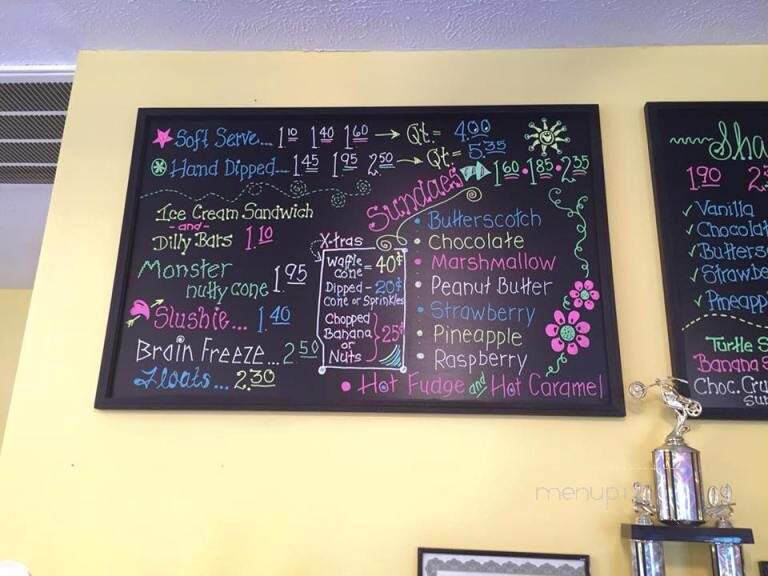 Soft Serve... 1.10 1.40 1.60 → Qt. = 4.00
Hand Dipped... 1.45 1.95 2.50 → Qt. = 5.35
Sundaes 1.60 • 1.85 • 2.35
Ice Cream Sandwich
-and-
Dilly Bars 1.10
Monster
nutty cone 1.95
Slushie... 1.40
Brain Freeze... 2.50
Floats... 2.30
X-tras
Waffle
cone = 40¢
Dipped - 20¢
Cone or Sprinkles
Chopped
Banana
or
Nuts } 25¢
• Butterscotch
• Chocolate
• Marshmallow
• Peanut Butter
• Strawberry
• Pineapple
• Raspberry
• Hot Fudge and Hot Caramel
Sha
1.90 2
✓ Vanilla
✓ Chocolat
✓ Buttersc
✓ Strawbe
✓ Pineapp
Turtle S
Banana S
Choc. Cru
Sun
menupi